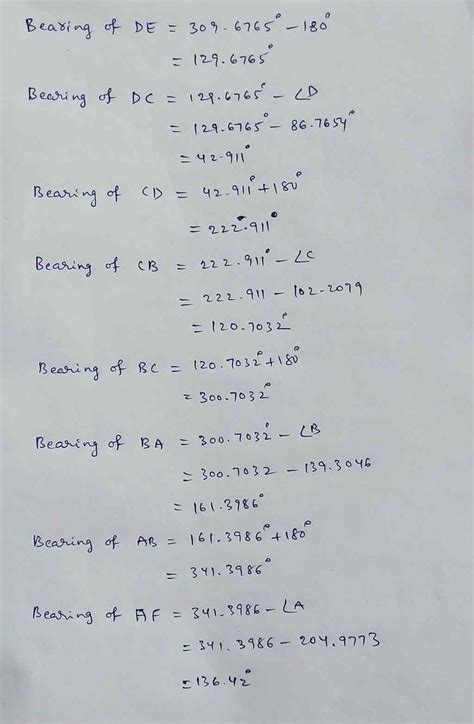 Bearing of DE = 309.6765° - 180°
= 129.6765°
Bearing of DC = 129.6765° - ∠D
= 129.6765° - 86.7654°
= 42.911°
Bearing of CD = 42.911° + 180°
= 222.911°
Bearing of CB = 222.911° - ∠C
= 222.911 - 102.2079
= 120.7032°
Bearing of BC = 120.7032° + 180°
= 300.7032°
Bearing of BA = 300.7032° - ∠B
= 300.7032 - 139.3046
= 161.3986°
Bearing of AB = 161.3986° + 180°
= 341.3986°
Bearing of AF = 341.3986 - ∠A
= 341.3986 - 204.9773
= 136.42°